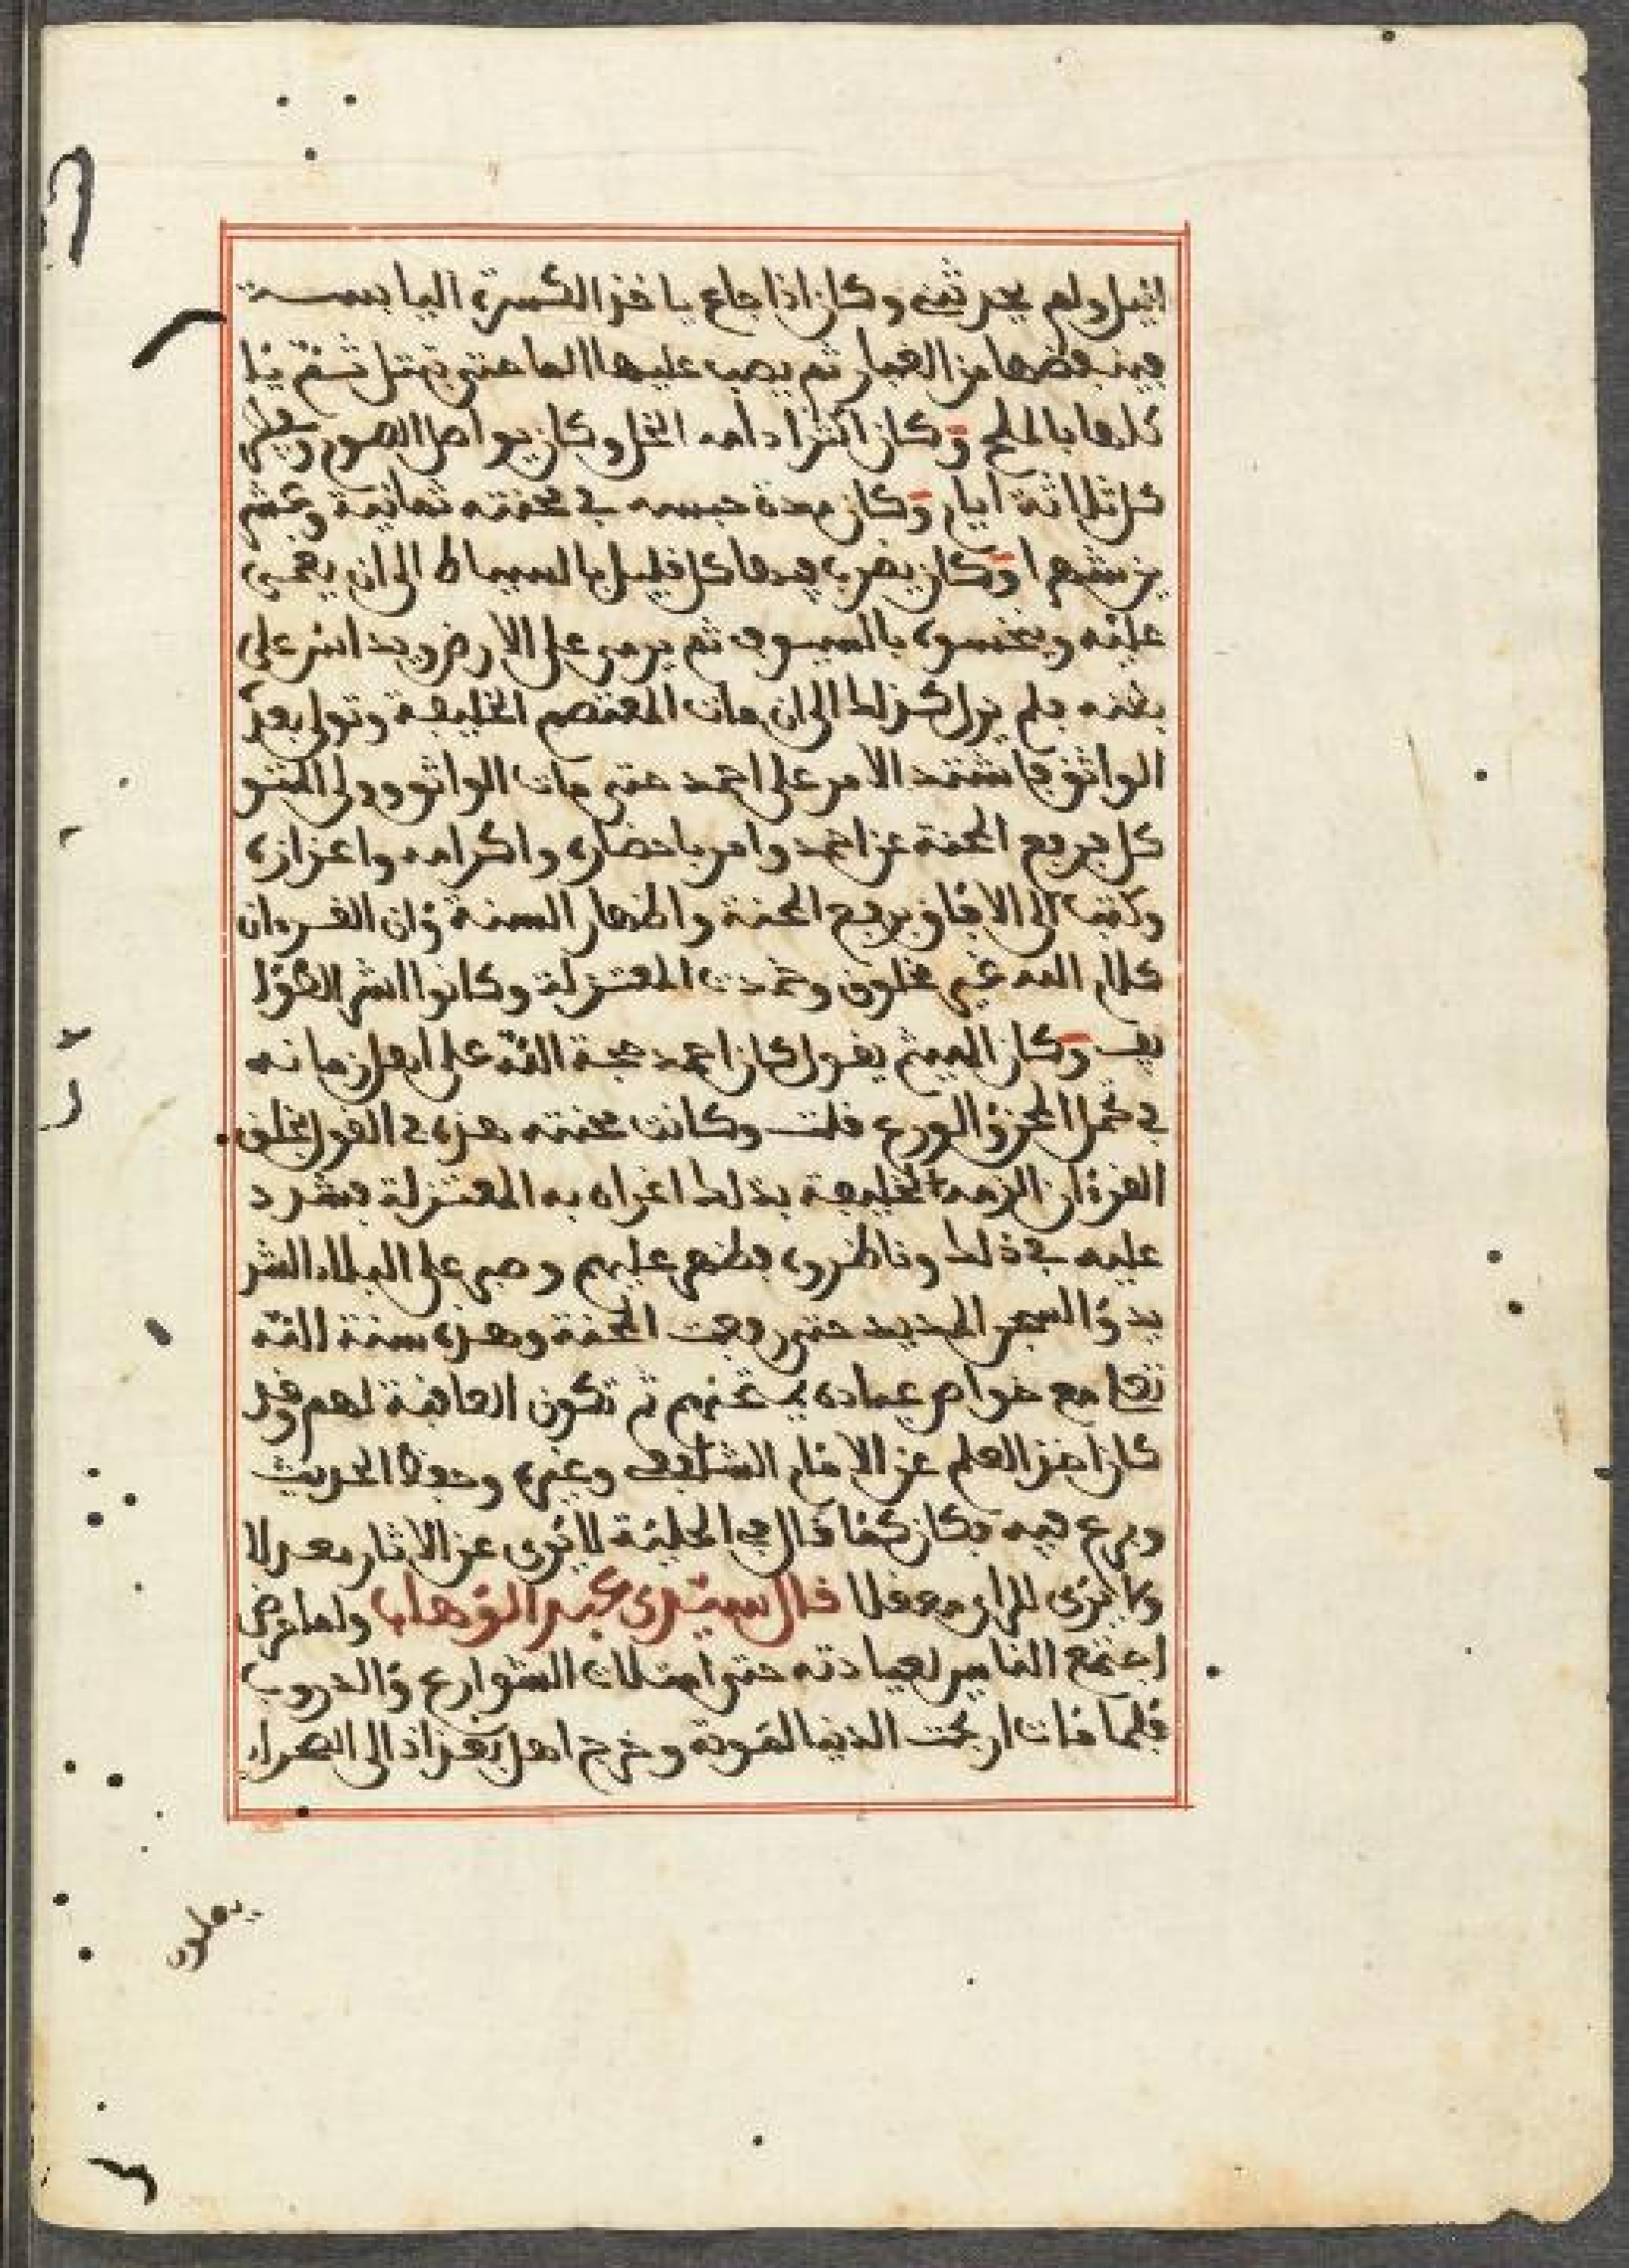 الليل ولم يحدثني وكان اذا جاع ياخذ الكسرة اليابسة
فينفضها من الغبار ثم يصب عليها الماء حتى تبتل ثم
كلها بالملح وكان اكثر ادامه الخل وكان يواصل الصوم ويفطر
كل ثلاثة ايام وكان مدة حبسه في محنته ثمانية وعشر
ين شهرا وكان يضرب فيها كل قليل بالسياط الى ان يغمى
عليه وينخسوه بالسيوف ثم يرمى على الارض ويداس على
بطنه فلم يزل كذلك الى ان مات المعتصم الخليفة وتولى بعده
الواثق فاشتد الامر على احمد حتى مات الواثق وولى المتو
كل فرفع المحنة عن احمد وامر باحضاره واكرامه واعزازه
وكتب الى الافاق برفع المحنة واظهار السنة وان القرءان
كلام الله غير مخلوق وخمدت المعتزلة وكانوا اشر الطوا
يف وكان الهيثم يقول كان احمد حجة الله على اهل زمانه
في تحمل المحن والورع قلت وكانت محنته هذه في القول بخلق
القرءان الزمه الخليفة بذلك اغراه به المعتزلة فشدد
عليه في ذلك وناظروه فظهر عليهم وصبر على البلاء الشد
يد والسجن المديد حتى رفعت المحنة وهذه سنة الله
تعلى مع خواص عباده يمتحنهم ثم تكون العاقبة لهم وقد
كان اخذ العلم عن الامام الشافعي وغيره وحفظ الحديث
وبرع فيه فكان كما قال في الحلية لا يرى عن الاثار معدلا
ولا يرى للراي معقلا قال سيدي عبد الوهاب ولما مرض
اجتمع الناس لعيادته حتى امتلات الشوارع والدروب
فلما مات ارتجت الدنيا لموته وخرج اهل بغداد الى الصحراء
يصلون